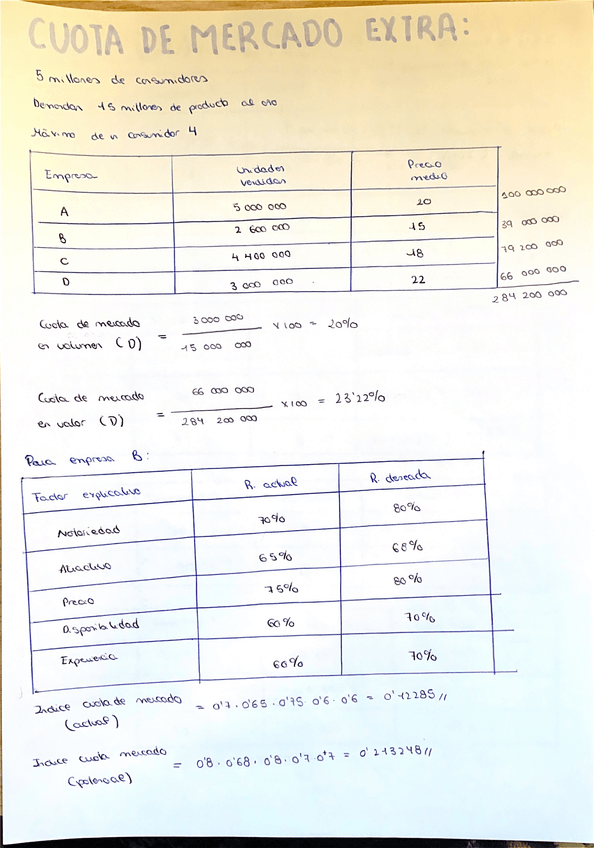 CUOTA DE MERCADO EXTRA:
5 millones de consumidores
Demandan 15 millones de producto al año
Máximo de un consumidor 4
Empresa Unidades vendidas Precio medio
A 5 000 000 20 100 000 000
B 2 600 000 15 39 000 000
C 4 400 000 18 79 200 000
D 3 000 000 22 66 000 000
284 200 000
Cuota de mercado en volumen (D) = 3 000 000 / 15 000 000 x 100 = 20%
Cuota de mercado en valor (D) = 66 000 000 / 284 200 000 x 100 = 23'22%
Para empresa B:
Factor explicativo R. actual R. deseada
Notoriedad 70% 80%
Atractivo 65% 68%
Precio 75% 80%
Disponibilidad 60% 70%
Experiencia 60% 70%
Indice cuota de mercado (actual) = 0'7 · 0'65 · 0'75 0'6 · 0'6 = 0'12285 //
Indice cuota mercado (potencial) = 0'8 · 0'68 · 0'8 · 0'7 0'7 = 0'213248 //